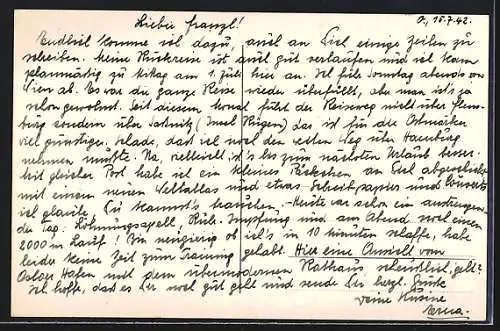 O., 15.7.42.
Liebe Franzl!
Endlich komme ich dazu, auch an Dich einige Zeilen zu
schreiben. Meine Rückreise ist auch gut verlaufen und ich kam
planmäßig zu Mittag am 1. Juli hier an. Ich fuhr Sonntag abends von
Wien ab. Es war die ganze Reise wieder überfüllt, aber man ist's ja
schon gewohnt. Seit diesem Monat führt der Reiseweg nicht über Flens-
burg sondern über Sassnitz (Insel Rügen) das ist für die Ostmärker
viel günstiger. Schade, daß ich noch den weiten Weg über Hamburg
nehmen mußte. Na, vielleicht ist's bis zum nächsten Urlaub besser.
Mit gleicher Post habe ich ein kleines Päckchen an Dich abgeschickt
mit einem neuen Weltatlas und etwas Schreibpapier und Couverts
ich glaube, Du kannst's brauchen. - Heute war schon ein anstrengen-
der Tag: Löhnungsapell, Ruhr-Impfung und am Abend noch einen
2000 m Lauf! Bin neugierig ob ich's in 10 Minuten schaffe, habe
leider keine Zeit zum Training gehabt. Hier eine Ansicht vom
Osloer Hafen mit dem übermodernen Rathaus, scheußlich, gelt?
Ich hoffe, daß es Dir noch gut geht und sende Dir herzl. Grüße
Deine Kusine
Erna.